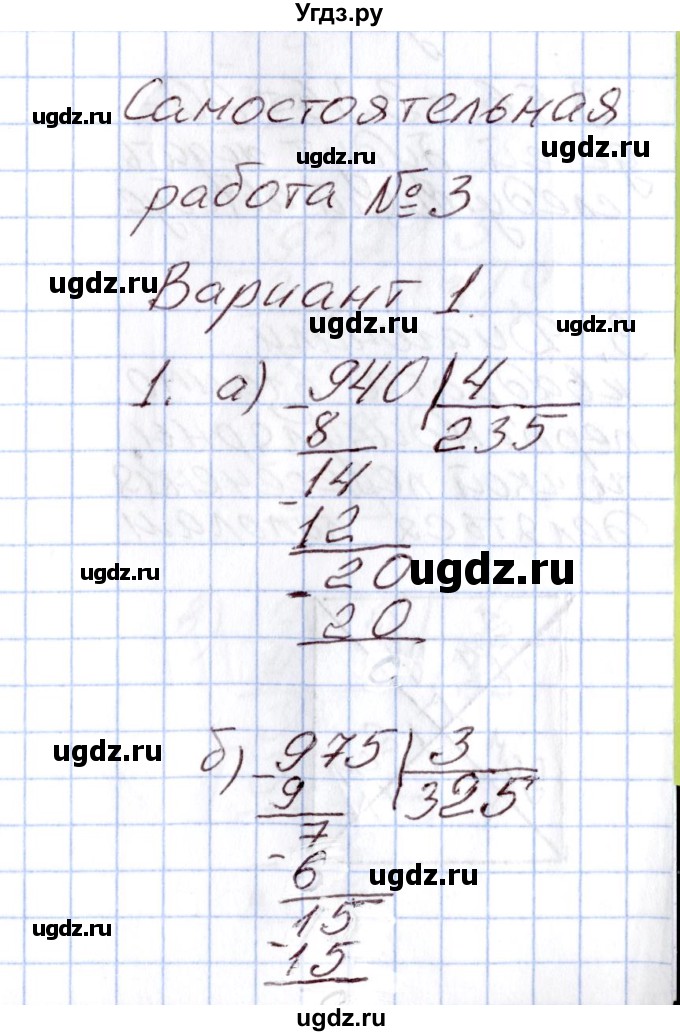 Угдз.ру
Самостоятельная
ugdz.ru
ugdz.ru
ugdz.ru
работа № 3
ugdz.ru
Вариант 1.
ugdz.ru
ugdz.ru
1. а) 940 4
- 8 235
14
- 12
ugdz.ru
20
ugdz.ru
- 20
б) 975 3
ugdz.ru
- 9 325
7
- 6
ugdz.ru
15
ugdz.ru
- 15
ugdz.ru